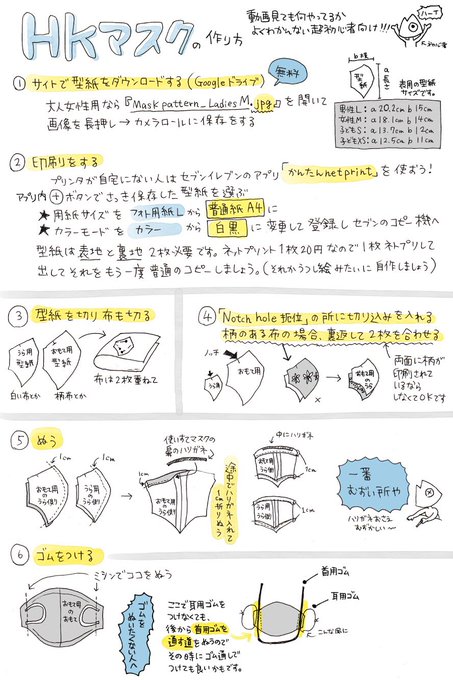 HKマスクの作り方
動画見ても何やってるか
よくわかんない超初心者向け!!!
ハーイ
① サイトで型紙をダウンロードする(Googleドライブ)
無料
大人女性用なら『Mask pattern_Ladies M.jpg』を開いて
画像を長押し→カメラロールに保存をする
b 横
a 長さ
型紙
表用の型紙
サイズです。
男性L:a 20.2cm b 15cm
女性M:a 18.1cm b 14cm
子どもS:a 13.7cm b 12cm
子どもXS:a 12.5cm b 11cm
② 印刷をする
プリンタが自宅にない人はセブンイレブンのアプリ「かんたんnetprint」を使おう!
アプリ内⊕ボタンでさっき保存した型紙を選ぶ
★ 用紙サイズを フォト用紙L から 普通紙A4 に
★ カラーモードを カラー から 白黒 に変更して登録しセブンのコピー機へ
型紙は表地と裏地2枚必要です。ネットプリント1枚20円なので1枚ネトプリして
出してそれをもう一度普通のコピーしましょう。(それかうつし絵みたいに自作しましょう)
③ 型紙を切り布も切る
うら用
型紙
おもて用
型紙
白い布とか
柄布とか
布は2枚重ねて
④「Notch hole 扼位」の所に切り込みを入れる
柄のある布の場合、裏返して2枚を合わせる
ノッチ
うら用
おもて用
×
両面に柄が
印刷されて
いるなら
しなくてOKです
⑤ ぬう
1cm
1cm
おもて用
のうら側
うら用
のうら側
使いすてマスクの
鼻のハリガネ
1cm
途中でハリガネ入れて
1cm折りぬう
中にハリガネ
1cm
一番
むずい所や
ハリガネおさえ
むずかしい〜
⑥ ゴムをつける
ミシンでココをぬう
おもて用
の
おもて
ゴムを
ぬいたくない人へ
ここで耳用ゴムを
つけなくても、
後から首用ゴムを
通す道をぬうので
その時にゴム通しで
つけても良いかもです。
首用ゴム
耳用ゴム
こんな風に